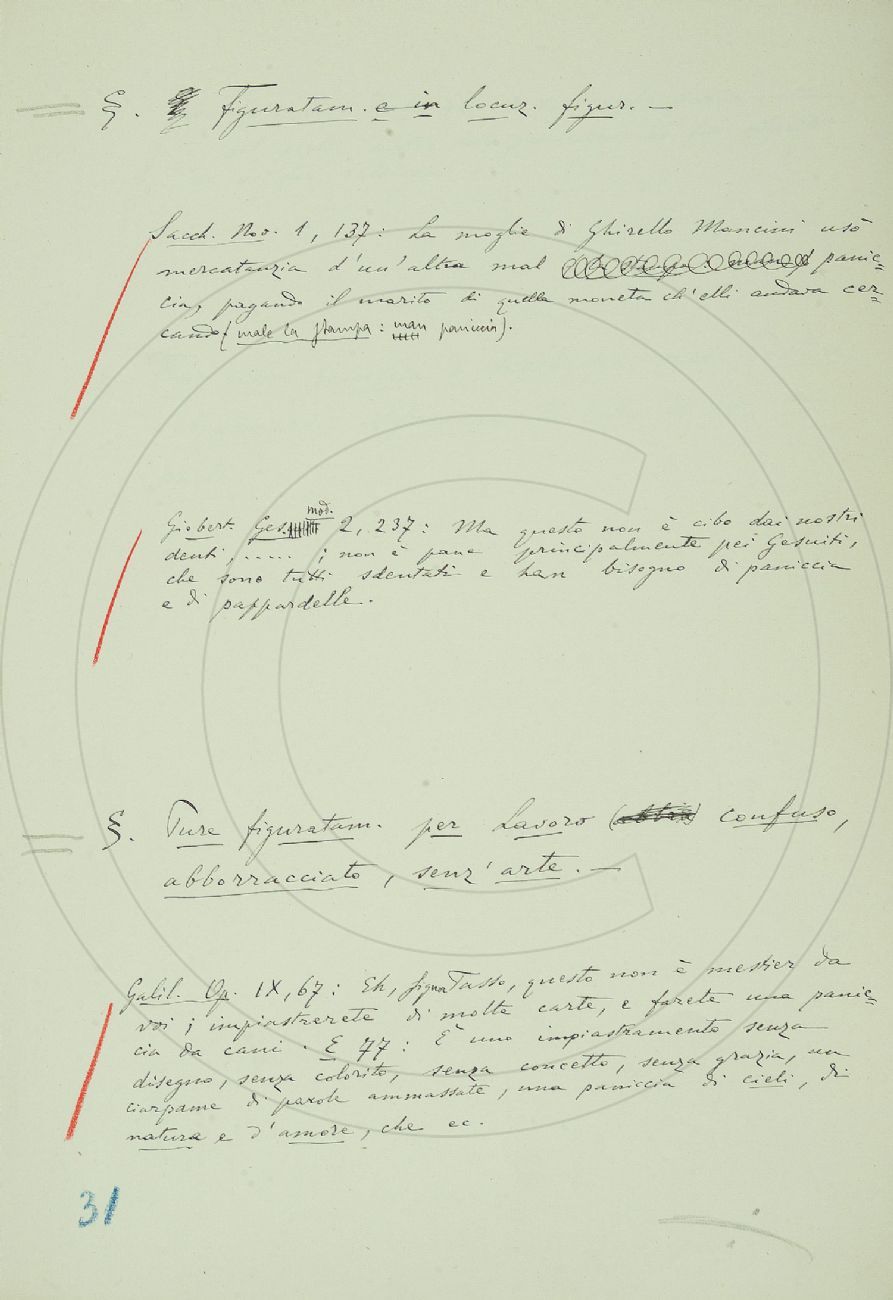 §. Figuratam. e in locuz. figur. —
Sacch. Nov. 1, 137: La moglie di Ghirello Mancini usò
mercatanzia d'un'altra mal panic=
cia, pagando il marito di quella moneta ch'elli andava cer=
cando (male la stampa: man paniccia).
Giobert. Ges. mod. 2, 237: Ma questo non è cibo dai nostri
denti, ..... ; non è pane principalmente pei Gesuiti,
che sono tutti sdentati e han bisogno di paniccia
e di pappardelle.
§. Pure figuratam. per Lavoro confuso,
abborracciato, senz'arte. —
Galil. Op. IX, 67: Eh, signor Tasso, questo non è mestier da
voi; impiastrerete di molte carte, e farete una panic=
cia da cani. E 77: È uno impiastramento senza
disegno, senza colorito, senza concetto, senza grazia, un
ciarpame di parole ammassate, una paniccia di cieli, di
natura e d'amore, che ec.
31